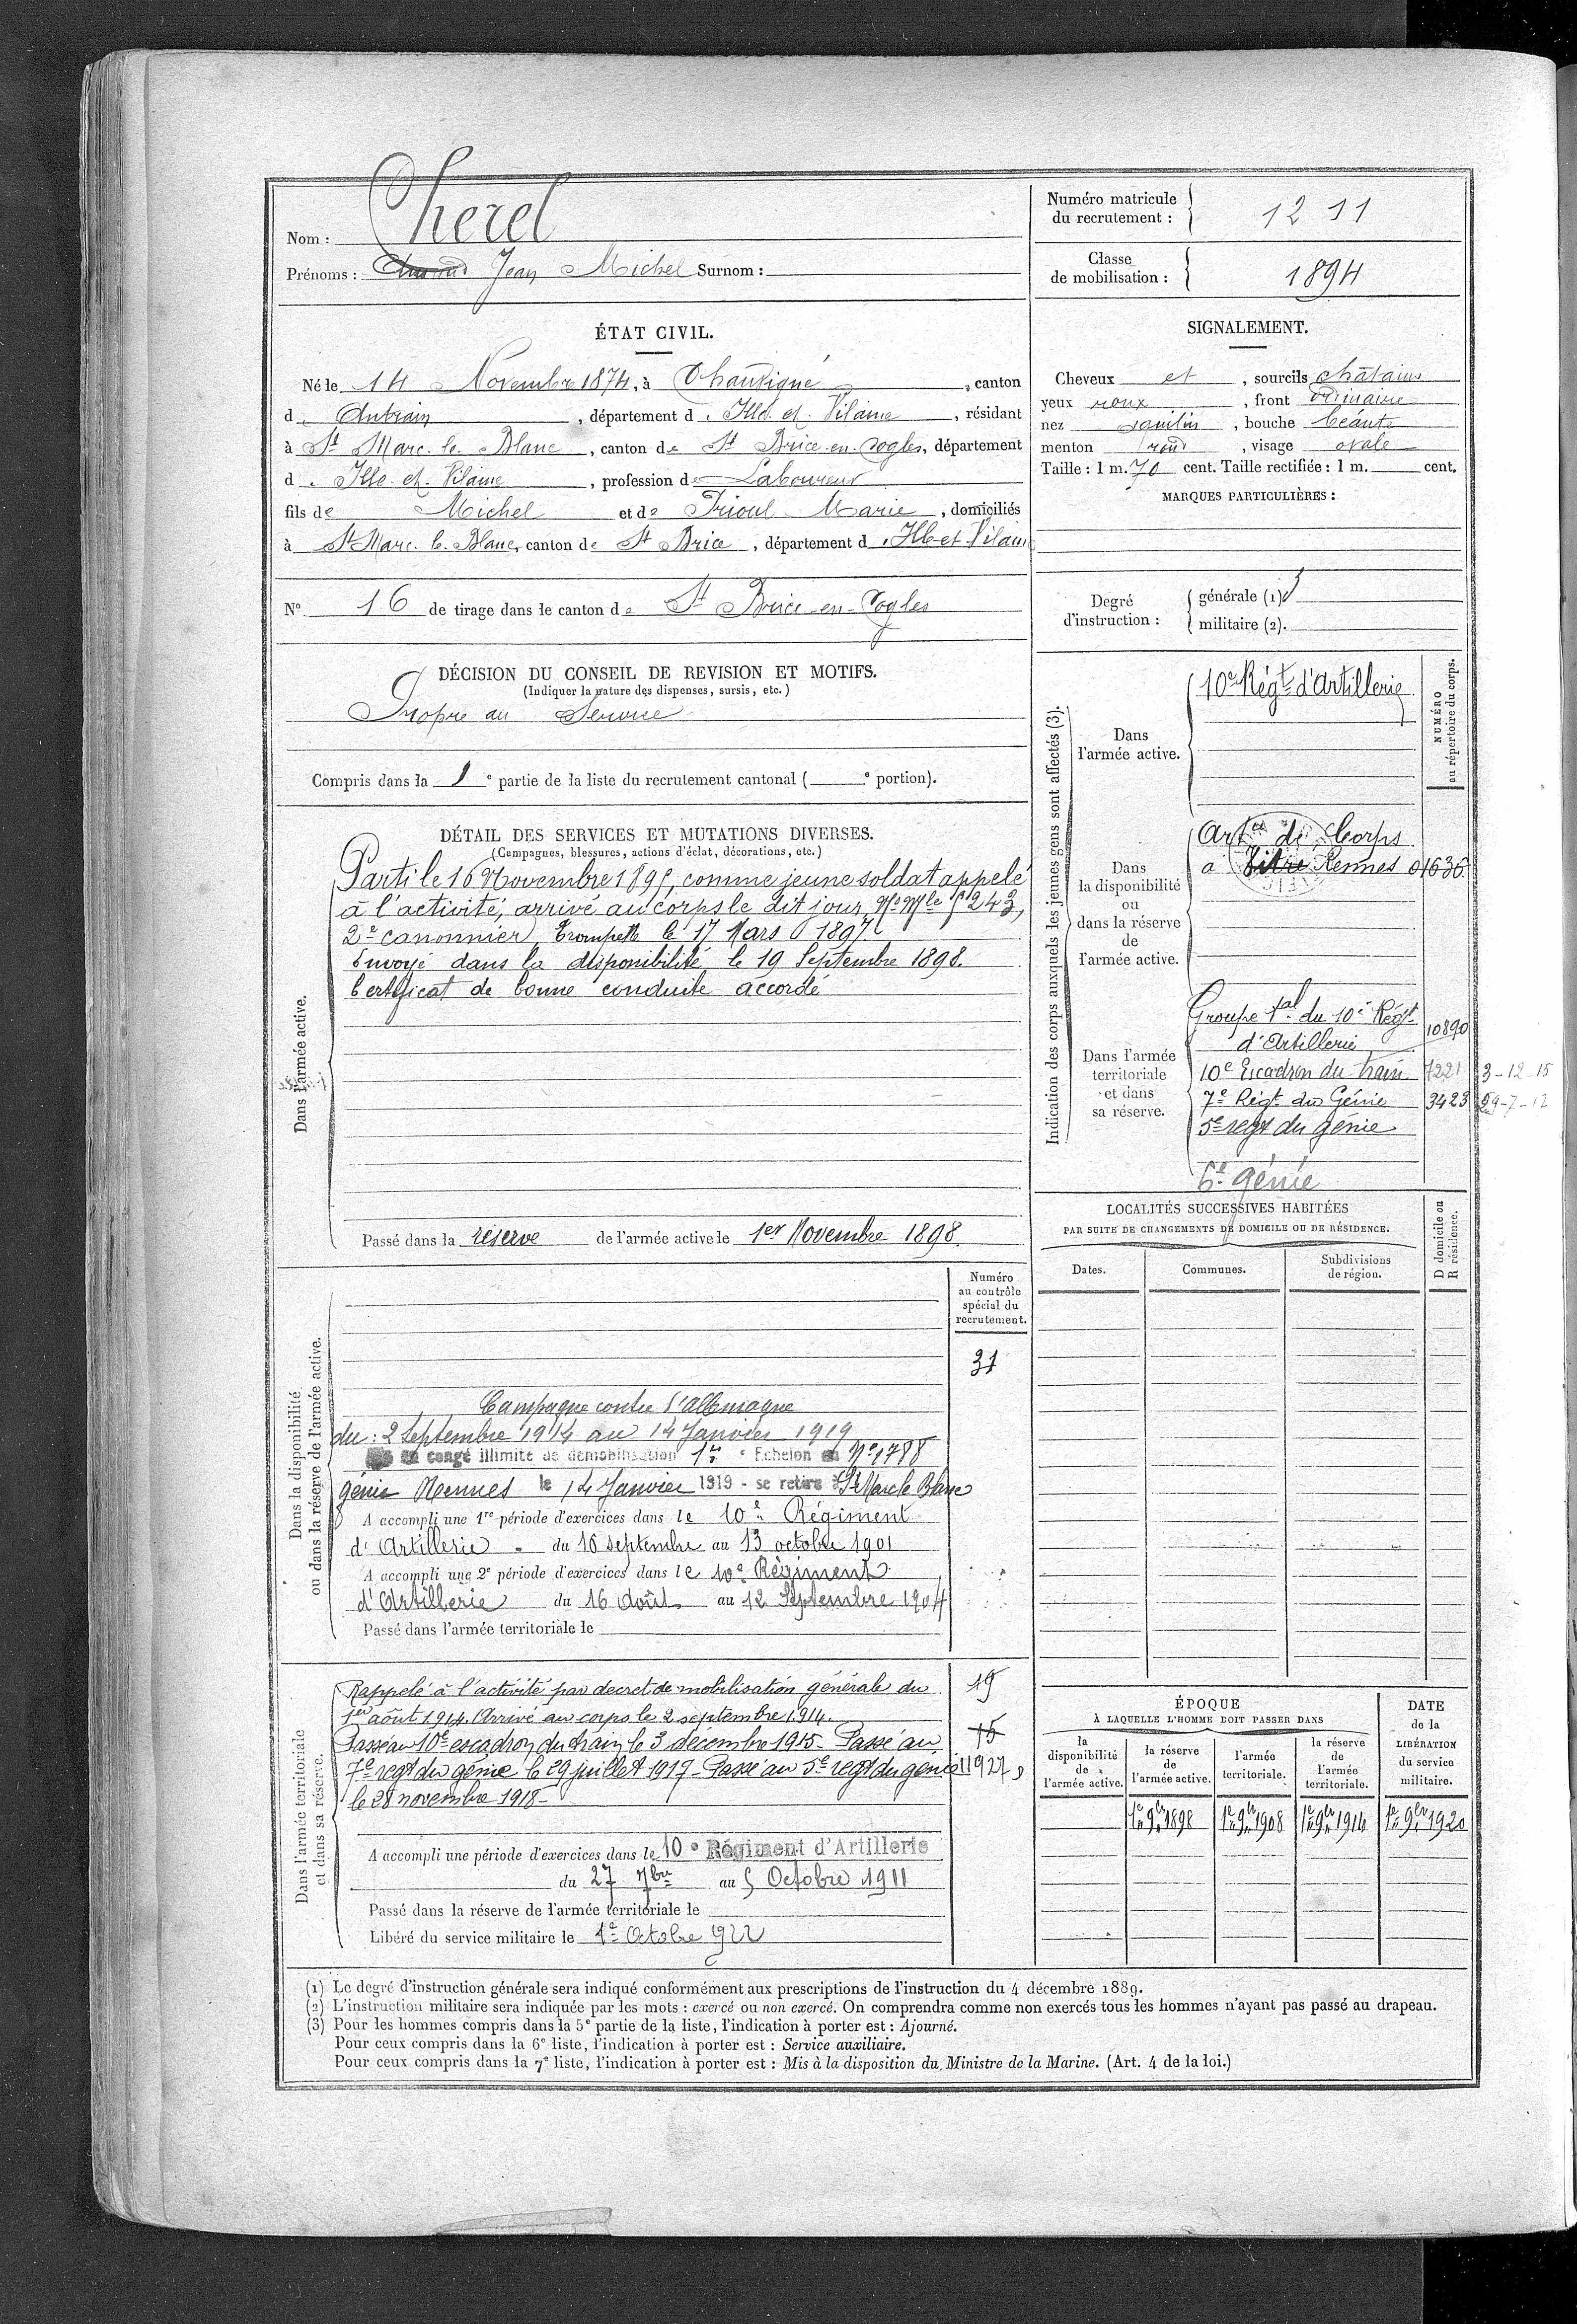 Nom : Cherel
Prénoms : Jean Michel Surnom :
Numéro matricule du recrutement : 1211
Classe de mobilisation : 1894
ÉTAT CIVIL.
Né le 14 Novembre 1874, à Chauvigné, canton
d'Antrain, département d'Ille et Vilaine, résidant
à St Marc le Blanc, canton de St Brice-en-Cogles, département
d'Ille et Vilaine, profession de Laboureur
fils de Michel et de Prioul Marie, domiciliés
à St Marc le Blanc, canton de St Brice, département d'Ille-et-Vilaine
N° 16 de tirage dans le canton de St Brice-en-Cogles
SIGNALEMENT.
Cheveux et, sourcils châtains
yeux roux, front ordinaire
nez aquilin, bouche béante
menton rond, visage ovale
Taille : 1 m. 70 cent. Taille rectifiée : 1 m. cent.
MARQUES PARTICULIÈRES :
Degré d'instruction :
générale (1) 3
militaire (2).
DÉCISION DU CONSEIL DE REVISION ET MOTIFS.
(Indiquer la nature des dispenses, sursis, etc.)
Propre au Service
Compris dans la 1e partie de la liste du recrutement cantonal ( e portion).
DÉTAIL DES SERVICES ET MUTATIONS DIVERSES.
(Campagnes, blessures, actions d'éclat, décorations, etc.)
Dans l'armée active.
Parti le 16 Novembre 1895, comme jeune soldat appelé
à l'activité, arrivé au corps le dit jour, No Mle 243,
2e canonnier, Trompette le 17 Mars 1897.
Envoyé dans la disponibilité le 19 Septembre 1898.
Certificat de bonne conduite accordé
Passé dans la réserve de l'armée active le 1er Novembre 1898.
Indication des corps auxquels les jeunes gens sont affectés (3).
NUMÉRO au répertoire du corps.
Dans l'armée active.
10e Régt d'Artillerie
Dans la disponibilité ou dans la réserve de l'armée active.
Artie de Corps
a Vitré Rennes 01636
Dans l'armée territoriale et dans sa réserve.
Groupe tal du 10e Régt
d'Artillerie 10890
10e Escadron du train 7221 3-12-15
7e Régt du Génie 3423 29-7-17
5e régt du génie
6e génie
LOCALITÉS SUCCESSIVES HABITÉES
PAR SUITE DE CHANGEMENTS DE DOMICILE OU DE RÉSIDENCE.
Dates. Communes. Subdivisions de région. D domicile ou R résidence.
Dans la disponibilité ou dans la réserve de l'armée active.
Numéro au contrôle spécial du recrutement.
31
Campagne contre l'Allemagne
du : 2 Septembre 1914 au 14 Janvier 1919
en congé illimité de démobilisation 1er Echelon No 1788
génie Rennes le 14 Janvier 1919 - se retire St Marc le Blanc
A accompli une 1re période d'exercices dans le 10e Régiment
d'Artillerie du 16 septembre au 13 octobre 1901
A accompli une 2e période d'exercices dans le 10e Régiment
d'Artillerie du 16 Août au 12 Septembre 1904
Passé dans l'armée territoriale le
Dans l'armée territoriale et dans sa réserve.
Rappelé à l'activité par décret de mobilisation générale du 19
1er août 1914. Arrivé au corps le 2 septembre 1914.
Passé au 10e escadron du train le 3 décembre 1915 - Passé au 15
7e régt du génie le 29 juillet 1917 - Passé au 5e régt du génie 11927
le 28 novembre 1918 -
A accompli une période d'exercices dans le 10e Régiment d'Artillerie
du 27 7bre au 5 Octobre 1911
Passé dans la réserve de l'armée territoriale le
Libéré du service militaire le 1er Octobre 922
ÉPOQUE
À LAQUELLE L'HOMME DOIT PASSER DANS
DATE de la LIBÉRATION du service militaire.
la disponibilité de l'armée active.
la réserve de l'armée active.
l'armée territoriale.
la réserve de l'armée territoriale.
1er 9bre 1898 1er 9bre 1908 1er 9bre 1914 1er 9bre 1920
(1) Le degré d'instruction générale sera indiqué conformément aux prescriptions de l'instruction du 4 décembre 1889.
(2) L'instruction militaire sera indiquée par les mots : exercé ou non exercé. On comprendra comme non exercés tous les hommes n'ayant pas passé au drapeau.
(3) Pour les hommes compris dans la 5e partie de la liste, l'indication à porter est : Ajourné.
Pour ceux compris dans la 6e liste, l'indication à porter est : Service auxiliaire.
Pour ceux compris dans la 7e liste, l'indication à porter est : Mis à la disposition du Ministre de la Marine. (Art. 4 de la loi.)